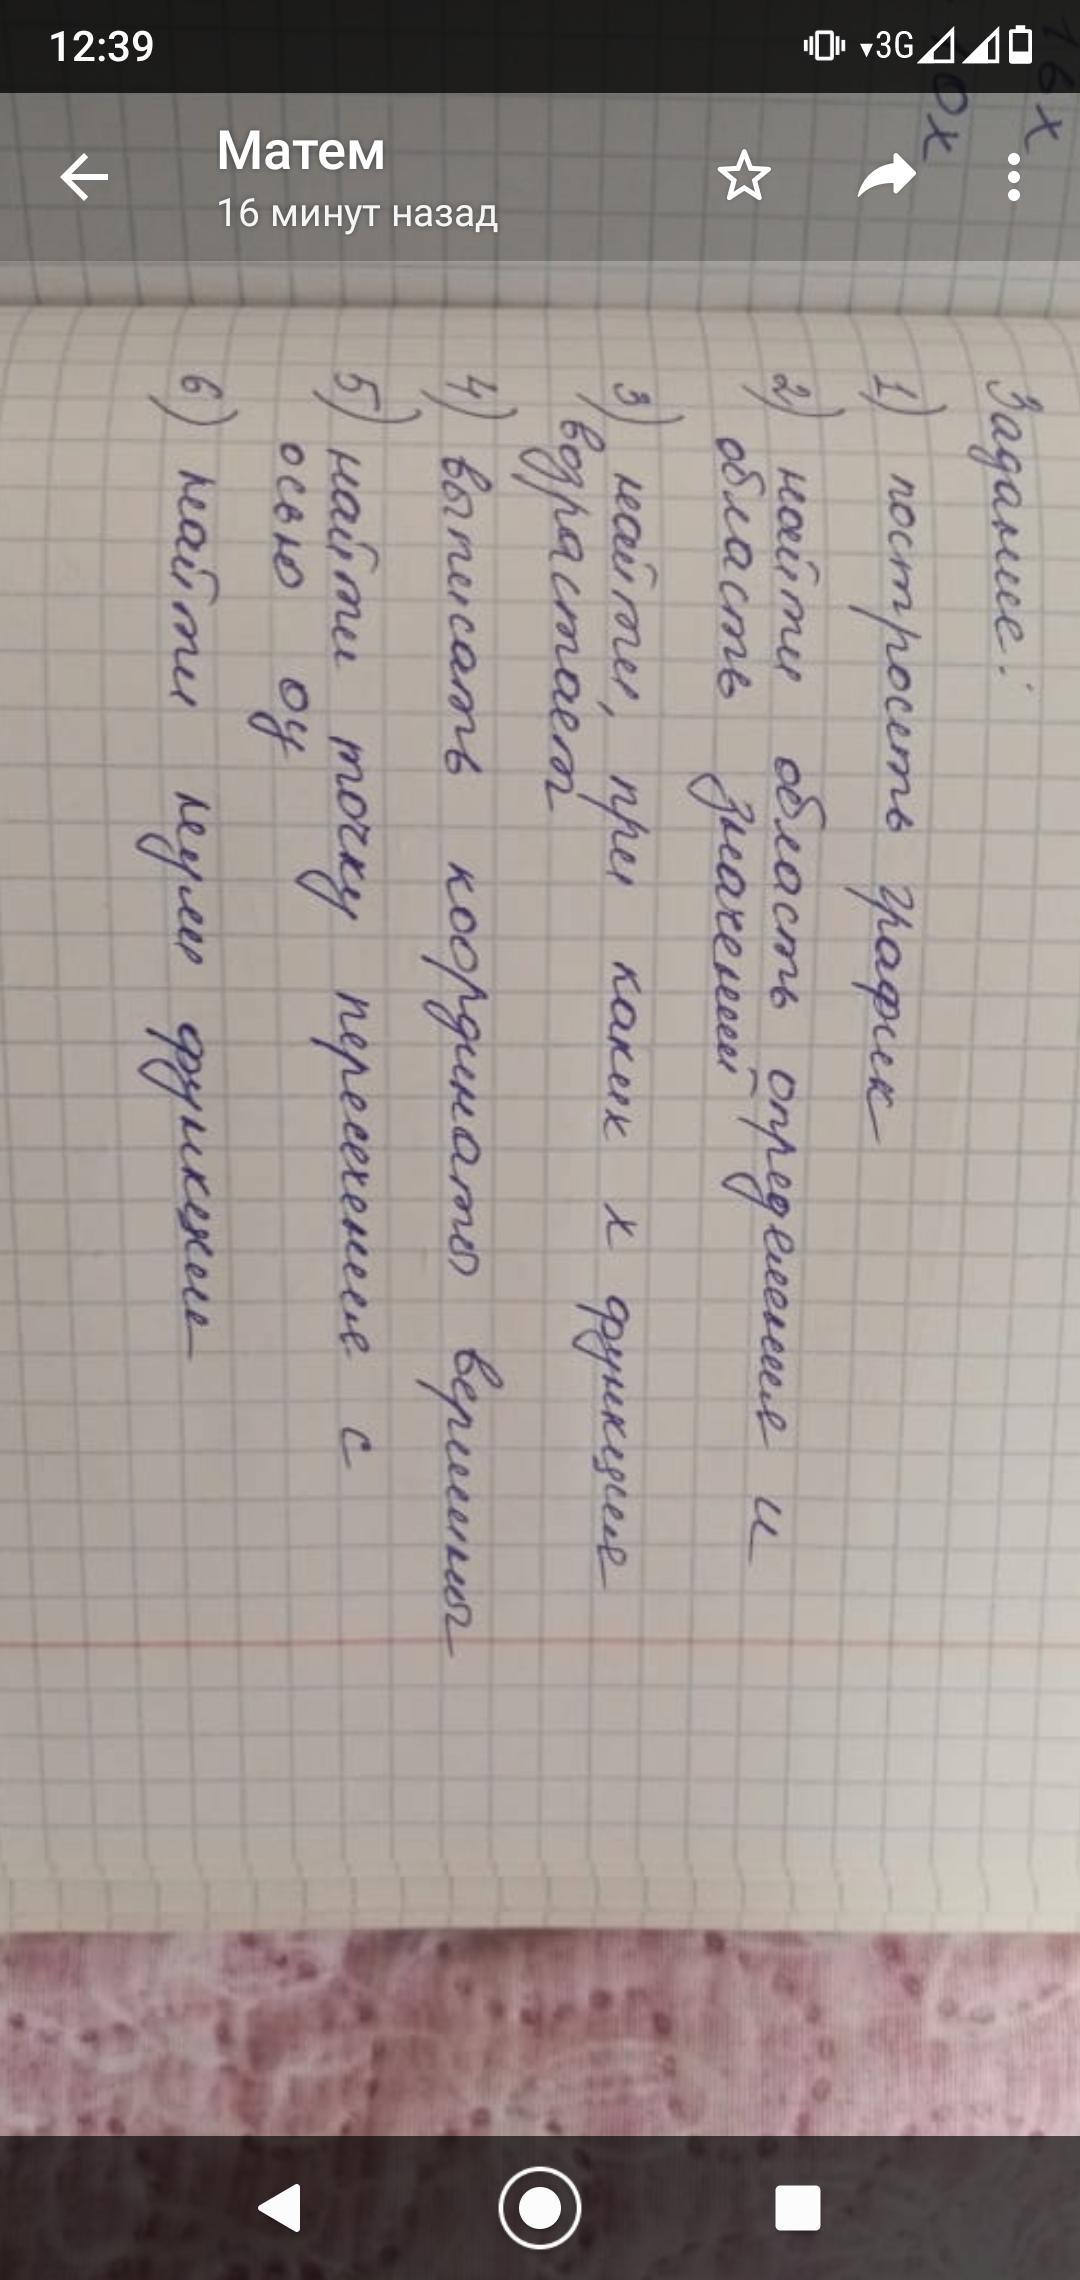 12:39
3G
Матем
16 минут назад
16х
0х
Задание:
1) построить график
2) найти область определения и
область значений
3) найти, при каких х функция
водрастает
4) выписать кординаты вершины
5) найти точку пересечения с
осью оу
6) найти нули функкции